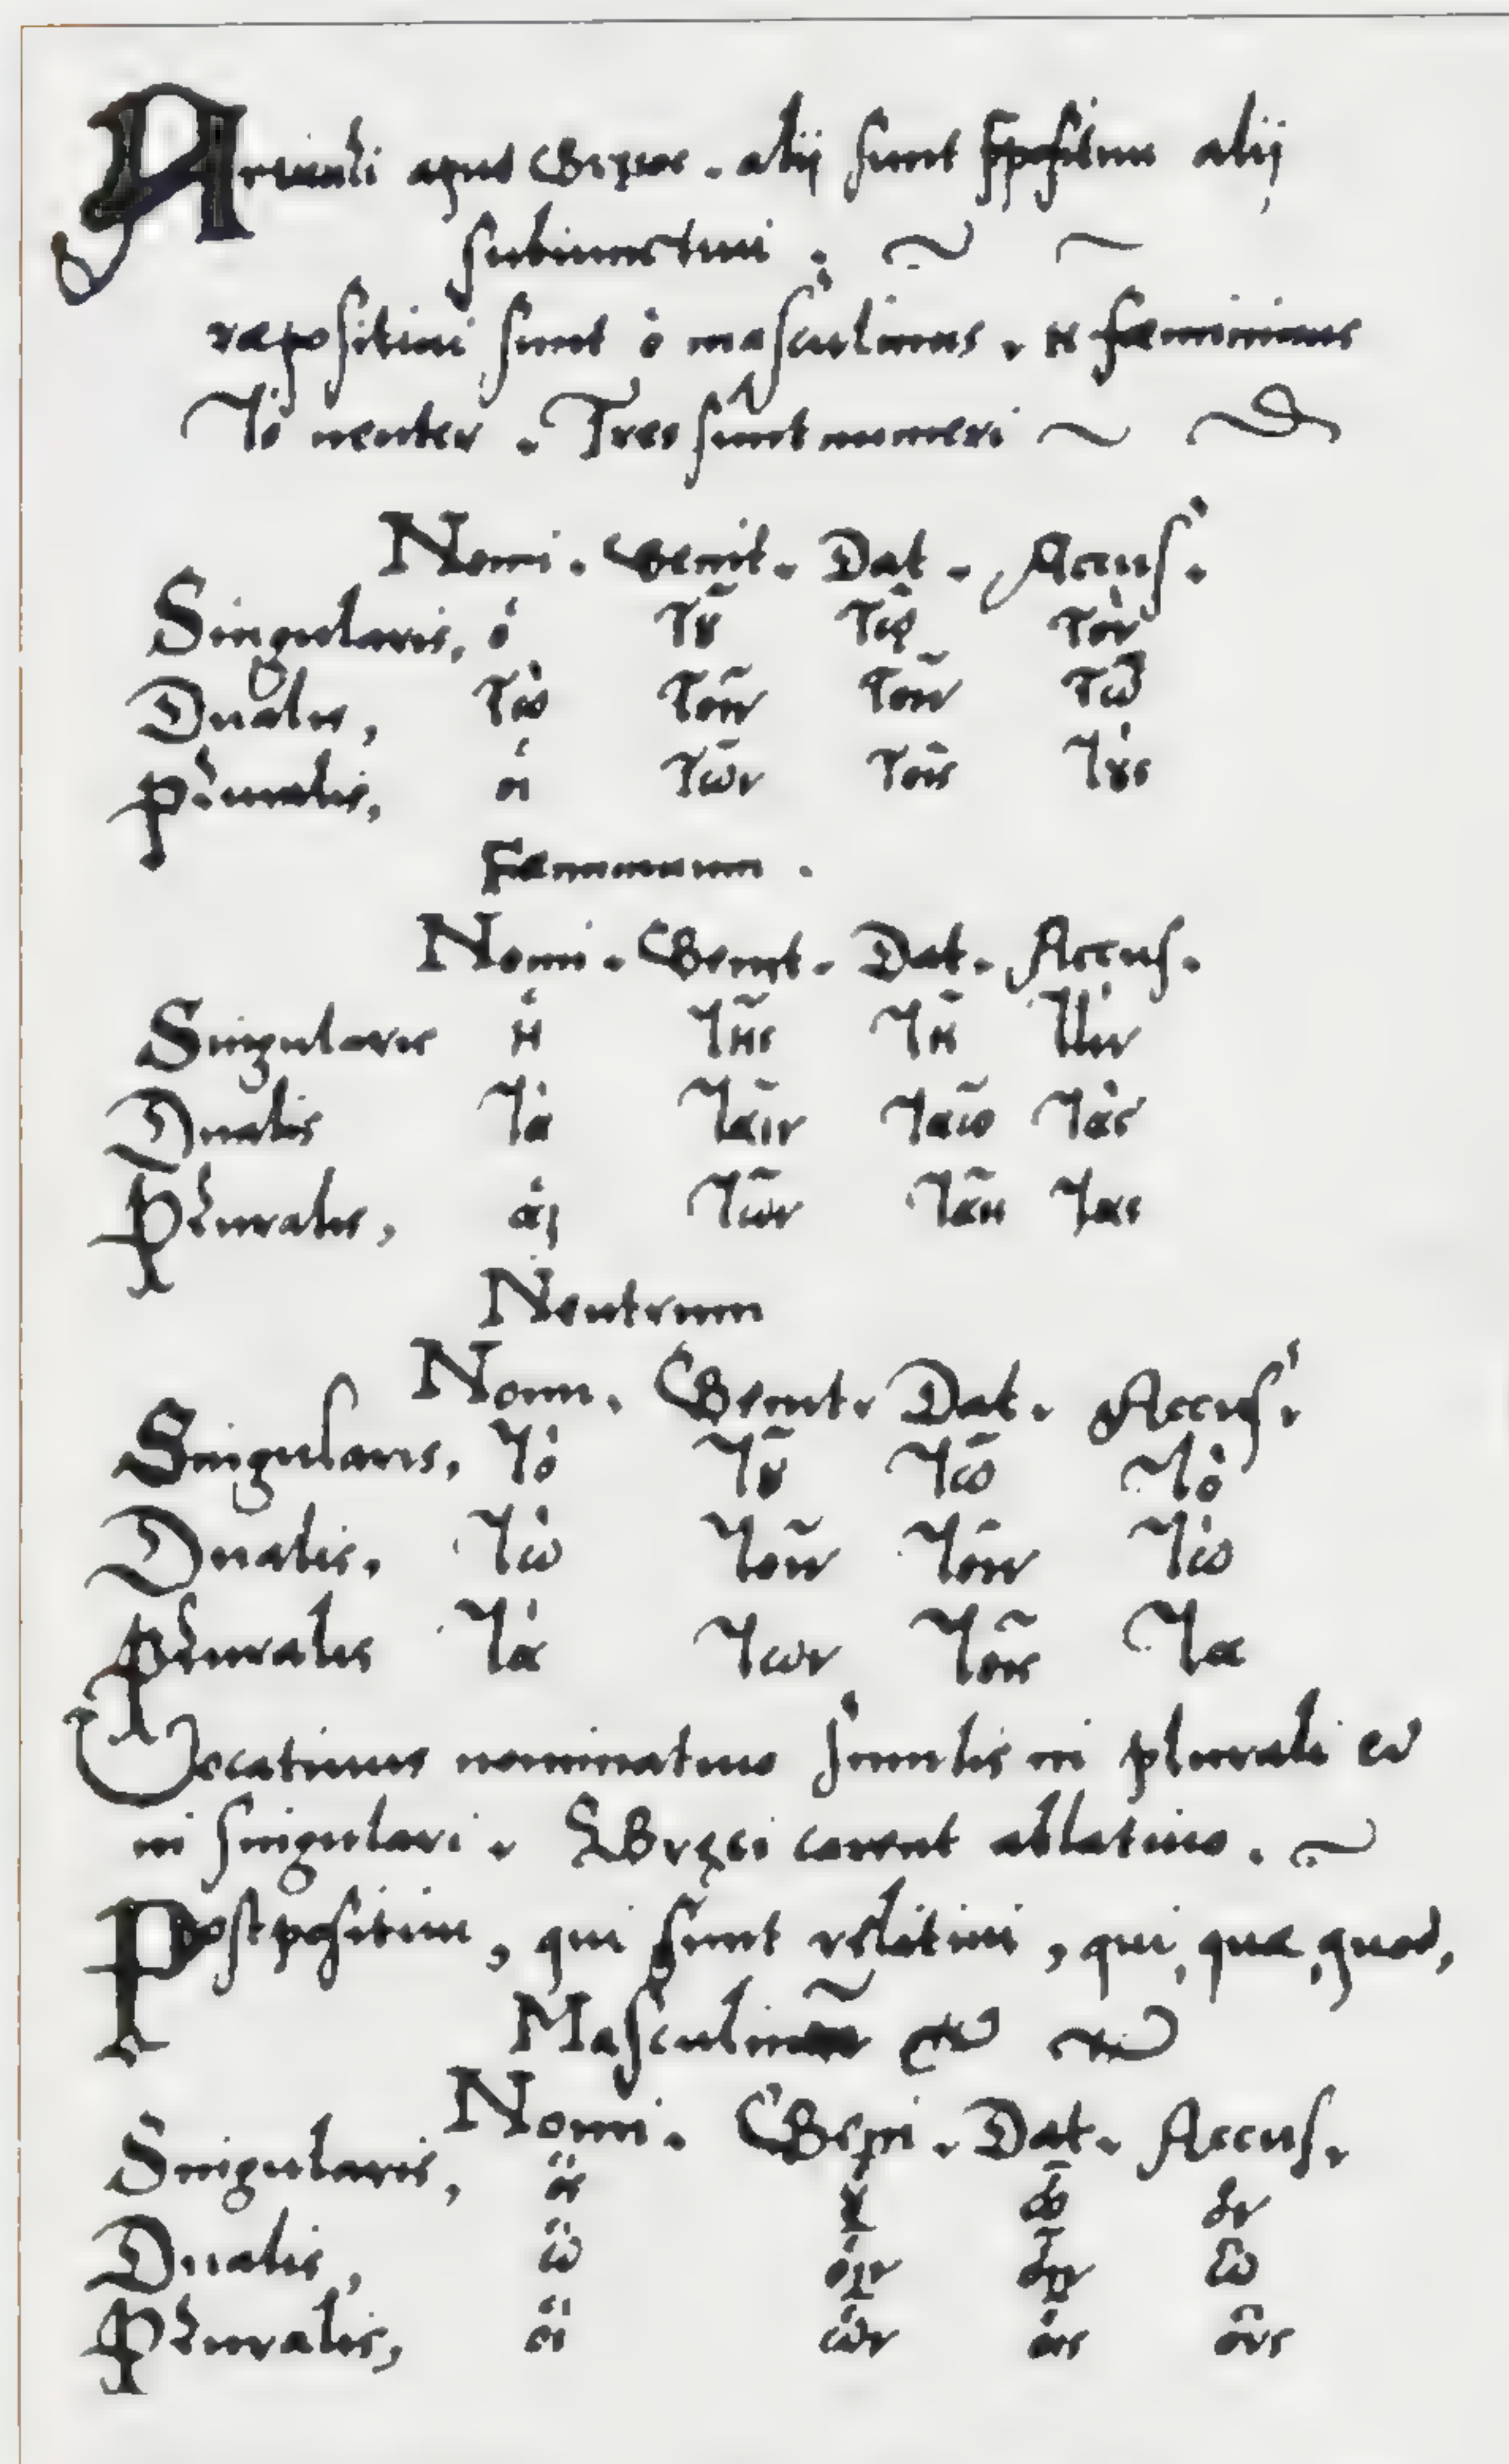 Articuli apud Græcos. alij sunt præpositiui alij
subiunctiui :
ræpositiui sunt ὁ masculinus. η fæmininus
Τὸ neuter. Tres sunt numeri
Nomi. Genit. Dat. Accus.
Singularis, ὁ τ͂ȣ τῷ τὸν
Dualis, τὼ τοῖν τοῖν τὼ
Pluralis, οἱ τῶν τοῖς τȣ̀ς
Fæmininum.
Nomi. Genit. Dat. Accus.
Singularis ἡ τῆς τῆ τὴν
Dualis τὰ ταῖν τὰς
Pluralis, ἁι τῶν ταις
Neutrum
Nomi. Genit. Dat. Accus.
Singularis, τὸ τȣ͂ τῶ τὸ
Dualis, τὼ τοῖν τοῖν τὼ
Pluralis τὰ των τοῖς τα
Vocatiuus nominatiuo similis in plurali et
in singulari. Græci carent ablatiuo.
Postpositiui, qui sunt relatiui, qui, quæ, quod,
Masculinum
Nomi. Geni. Dat. Accus.
Singularis, ὃς ȣ ὧ ὃν
Dualis, ὣ οἱν οἱν ὣ
Pluralis, οἳ ὡν οἱς οὓς